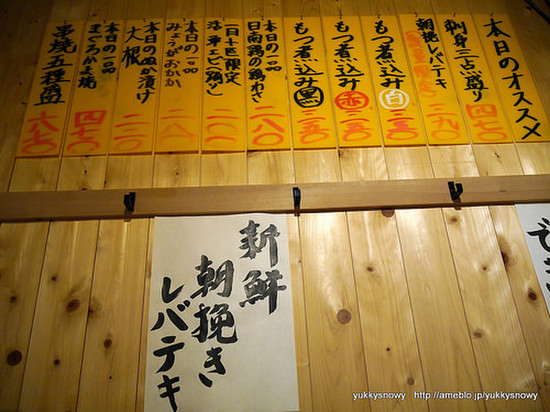 本日のオススメ
刺身三点盛り
四七〇
朝挽レバテキ
二九〇
もつ煮込み
白
二五〇
もつ煮込み
赤
二五〇
もつ煮込み
黒
二五〇
本日の一品
日南鶏の鶏わさ
二八〇
一日十匹限定
一〇〇
本日の一品
みょうがおかか
一八〇
本日のぬか漬け
大根
二一〇
本日の一品
まぐろかま焼
四七〇
串焼五種盛
六八〇
新鮮
朝挽き
レバテキ
yukkysnowy http://ameblo.jp/yukkysnowy